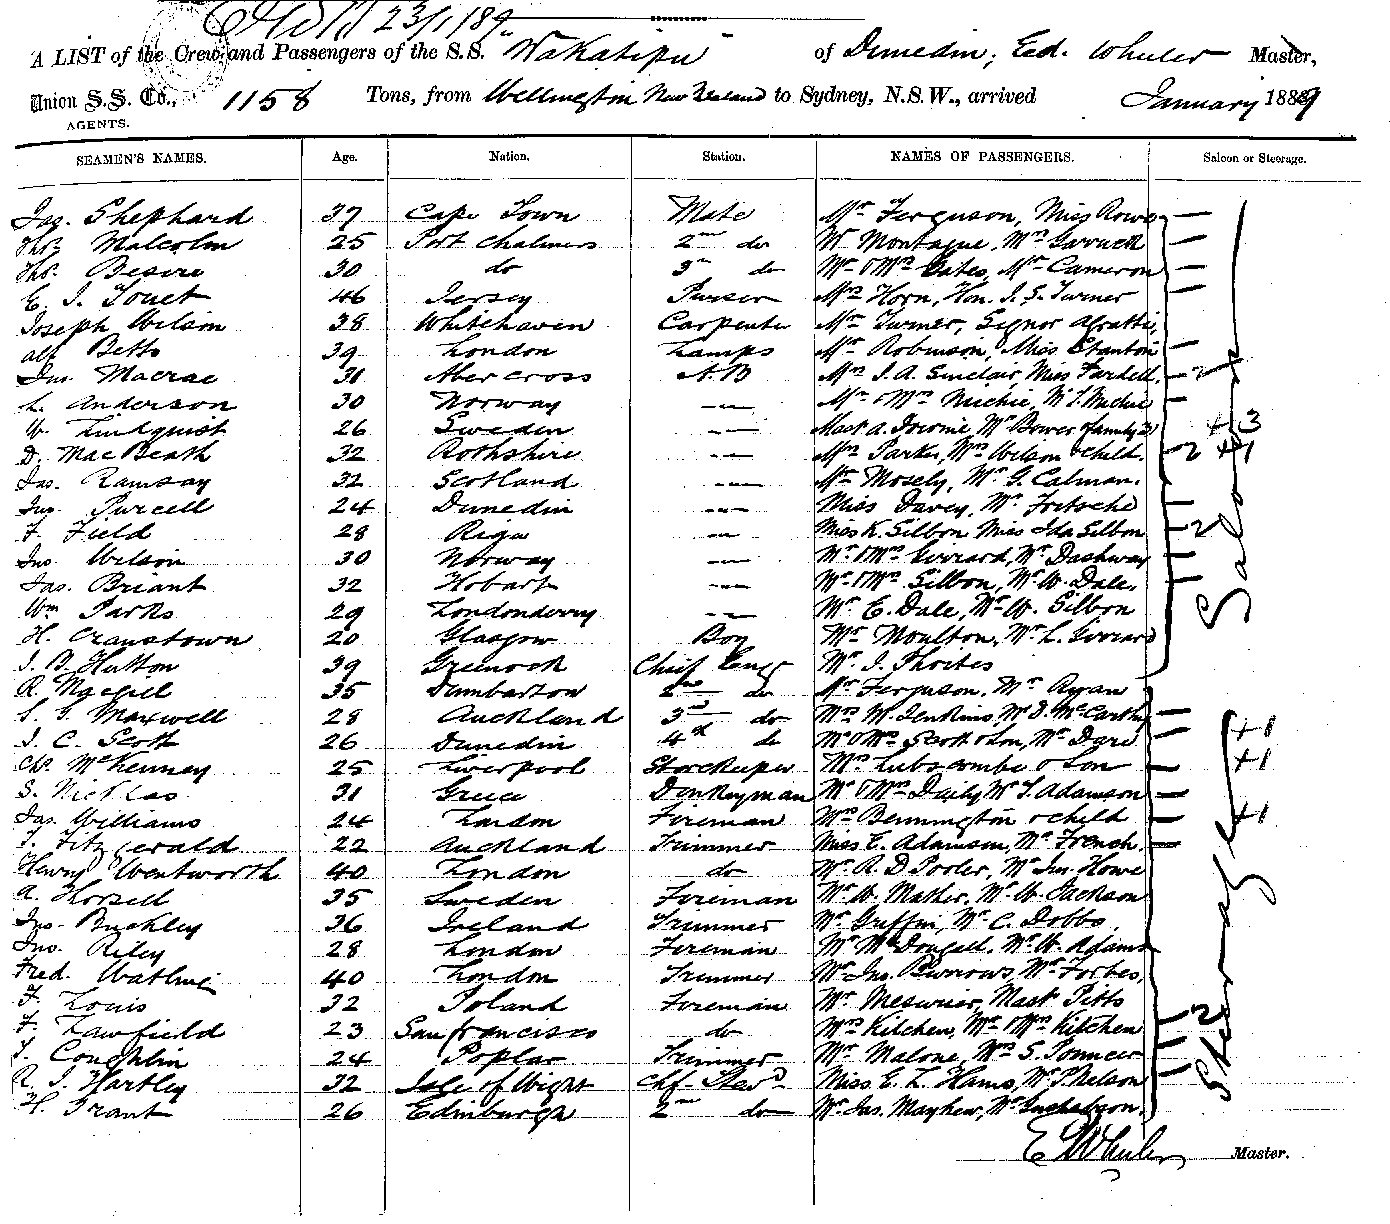 23/1/89
A LIST of the Crew and Passengers of the S.S. "Wakatipu" of Dunedin, Ed. Wheeler Master,
Union S.S. Co., 1158 Tons, from Wellington New Zealand to Sydney, N.S.W., arrived January 1889
AGENTS.
SEAMEN'S NAMES. Age. Nation. Station. NAMES OF PASSENGERS. Saloon or Steerage.
Jas. Shephard 37 Cape Town Mate Mr Ferguson, Miss Rowe
Thos Malcolm 25 Port Chalmers 2nd do Mr Montague, Mrs
Thos. 30 do 3rd do Mr & Mrs Gates, Mr Cameron
E. J. Touet 46 Jersey Purser Mrs Horn, Hon. J. S. Turner
Joseph Wilson 38 Whitehaven Carpenter Mr Turner, Signor
Alf Betts 39 London Lamps Mr Robinson, Miss Stanton
Jno. Macrae 31 Abercross A.B Mrs J. A. Sinclair, Miss Fardell 2
L. Anderson 30 Norway — Mr & Mrs Michie, M. J. Michie
W. Lindquist 26 Sweden — Mast A. Downie, Mr Bower & family 3
D. MacBeath 32 Rothshire — Mrs Parker, Mrs Wilson & child. 2 + 1
Jas. Ramsay 32 Scotland — Mr Mosely, Mr G. Calman.
Jno. Purcell 24 Dunedin — Miss Davey, Mr Fritsche
F. Field 28 Riga — Miss K. Silbon, Miss Ida Silbon 2
Jno. Wilson 30 Norway — Mr & Mrs Gerrard, Mr Dashway
Jas. Briant 32 Hobart — Mr & Mrs Silbon, Mr W. Dale.
Wm Parks 29 Londonderry — Mr E. Dale, Mr W. Silbon
H. Cranstown 20 Glasgow Boy Mr Moulton, Mr L. Gerrard
J. B. Hutton 39 Greenock Chief Engr Mr J. Thortes
Saloon
R. 35 Dumbarton 2nd do Mr Ferguson, Mr Ryan
S. G. Maxwell 28 Auckland 3rd do Mrs W. Jenkins, Mr D. McCarthy
J. C. Scott 26 Dunedin 4th do Mr & Mrs Scott & Son, Mr Dare + 1
Chs. McKenney 25 Liverpool Storekeeper Mrs Lubscombe & Son + 1
S. Nicklas 31 Greece Donkeyman Mr & Mrs Daily, Mr T. Adamson
Jas. Williams 24 London Fireman Mrs Bennington & child + 1
T. Fitzgerald 22 Auckland Trimmer Miss E. Adamson, Mr French.
Henry Wentworth 40 London do Mr R. D Pooler, Mr Jno. Howe
A. Horsell 35 Sweden Fireman Mr W. Mather, Mr W. Jackson
Jno. Buckley 36 Ireland Trimmer Mr Griffin, Mr C. Dobbs.
Jno. Riley 28 London Fireman Mr McDougall, Mr W. Adams
Fred. Watling 40 London Trimmer Mr Jno. Burrows, Mr Forbes,
F. Louis 32 Poland Fireman Mr Mesurier, Mast. Pitts
F. Tawfield 23 San francisco do Mrs Kitchen, Mr & Mrs Kitchen 2
J. Coughlin 24 Poplar Trimmer Mr Malone, Mrs S. Pouncer
R. J. Hartley 32 Isle of Wight Chf. Stewd. Miss E. L. Hams, Mr P. Nelson
H. Grant 26 Edinburgh 2nd do Mr Jas. Mayhew, Mr
Steerage
E Wheeler Master.